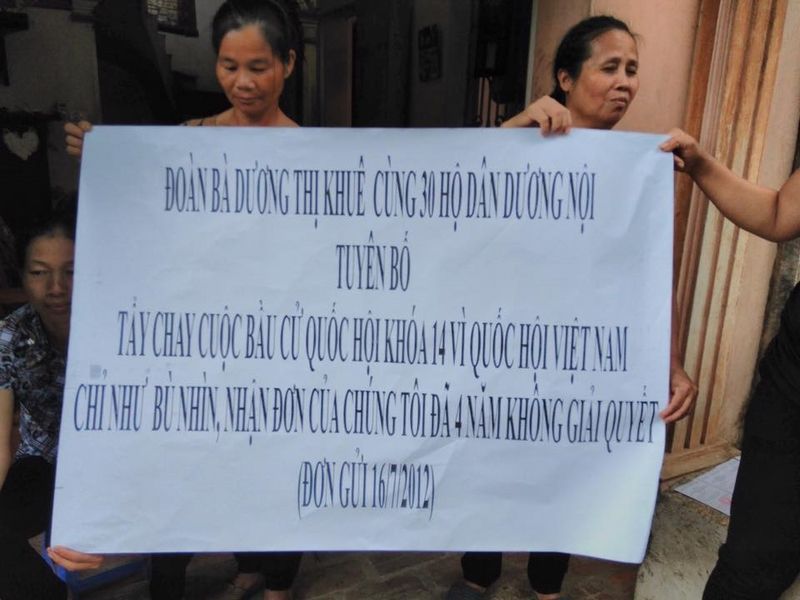 ĐOÀN BÀ DƯƠNG THỊ KHUÊ CÙNG 30 HỘ DÂN DƯƠNG NỘI
TUYÊN BỐ
TẨY CHAY CUỘC BẦU CỬ QUỐC HỘI KHÓA 14 VÌ QUỐC HỘI VIỆT NAM
CHỈ NHƯ BÙ NHÌN, NHẬN ĐƠN CỦA CHÚNG TÔI ĐÃ 4 NĂM KHÔNG GIẢI QUYẾT
(ĐƠN GỬI 16/7/2012)